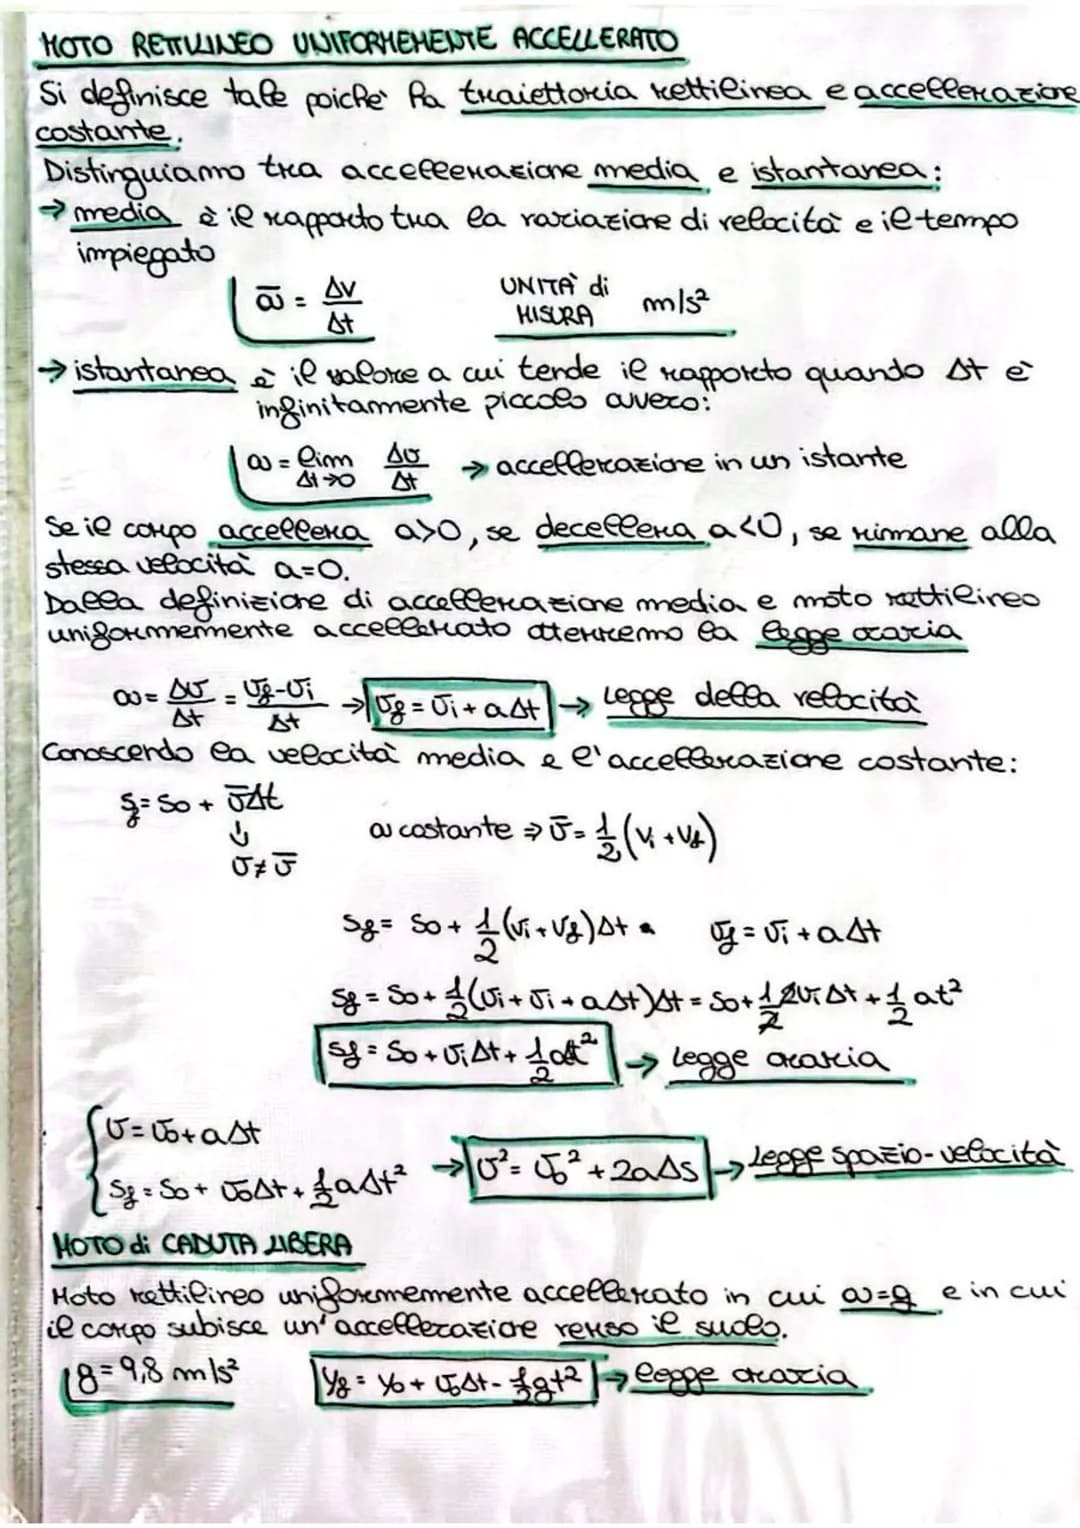 MOTO RETTILINEO UNIFORMEMENTE ACCELLERATO
Si definisce tale poiche' ha traiettoria rettilinea e accellerazione
costante.
Distinguiamo tra accellerazione media e istantanea:
→ media è il rapporto tra la variazione di velocità e il tempo
impiegato
ā = Δv/Δt UNITÀ di MISURA m/s²
→ istantanea è il valore a cui tende il rapporto quando Δt è
infinitamente piccolo ovvero:
a = lim Δt→0 Δv/Δt → accellerazione in un istante
Se il corpo accellera a>0, se decellera a<0, se rimane alla
stessa velocità a=0.
Dalla definizione di accellerazione media e moto rettilineo
uniformemente accellerato otterremo la legge oraria
a = Δv/Δt = vf-vi/Δt → vf = vi + aΔt → Legge della velocità
Conoscendo la velocità media e l'accellerazione costante:
sf = so + v̄Δt
↓
v ≠ v̄
a costante ⇒ v̄ = 1/2 (vi + vf)
sf = so + 1/2 (vi + vf)Δt • vf = vi + aΔt
sf = so + 1/2 (vi + vi + aΔt)Δt = so + 1/2 2vi Δt + 1/2 at²
sf = so + vi Δt + 1/2 at² → Legge oraria
v = vo + aΔt
sf = so + voΔt + 1/2 aΔt² → v² = vo² + 2aΔs → Legge spazio-velocità
MOTO di CADUTA LIBERA
Moto rettilineo uniformemente accellerato in cui a=g e in cui
il corpo subisce un'accellerazione verso il suolo.
g = 9,8 m/s² yf = yo + voΔt - 1/2 gt² → legge oraria